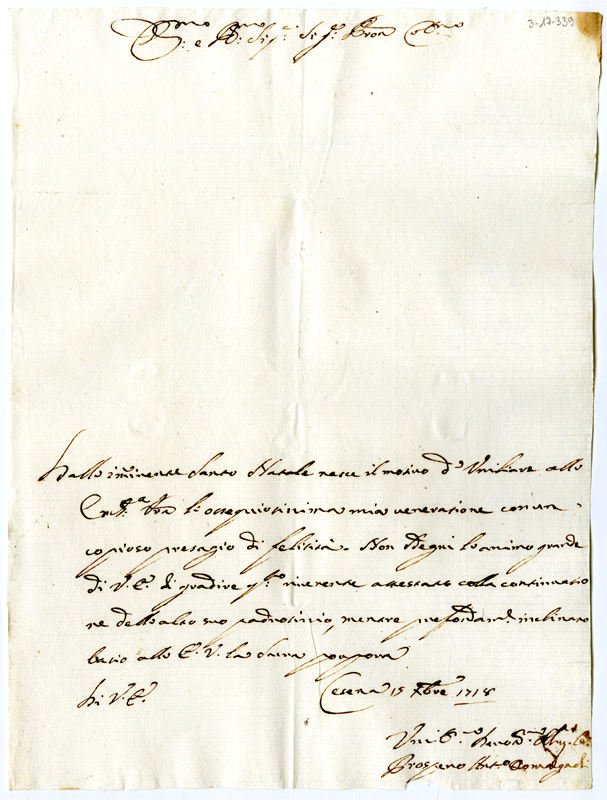 3-17-339
E.mo e R.mo Sig.r Sig.r Pron Col.mo
Dallo imminente Santo Natale nasce il motivo d' Umiliare allo
Em.za Vra l'ossequiosissima mia venerazione con un
copioso presagio di felicità. Non sdegni lo animo grande
di V. E. di gradire q.to riverente attestato colla continuatio
ne dell'alto suo padrocinio, mentre profondam.te inclinato
bacio allo E. V. la Sacra porpora
Di V. E.
Cesena 15 Xbre 1718
Umil.mo Devo.mo
Romagnoli